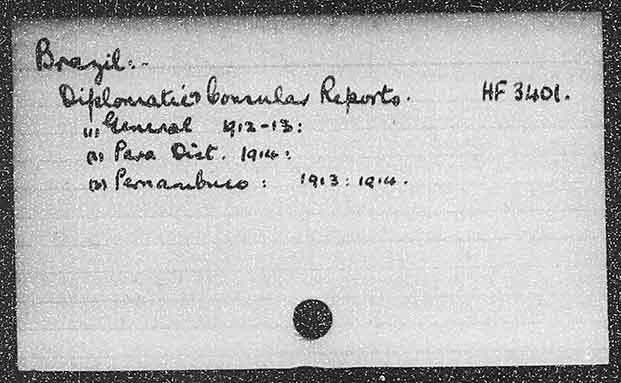 Brazil:-
Diplomatic & Consular Reports. HF 3401.
(1) General 1912-13:
(2) Para Dist. 1914:
(3) Pernambuco: 1913: 1914.